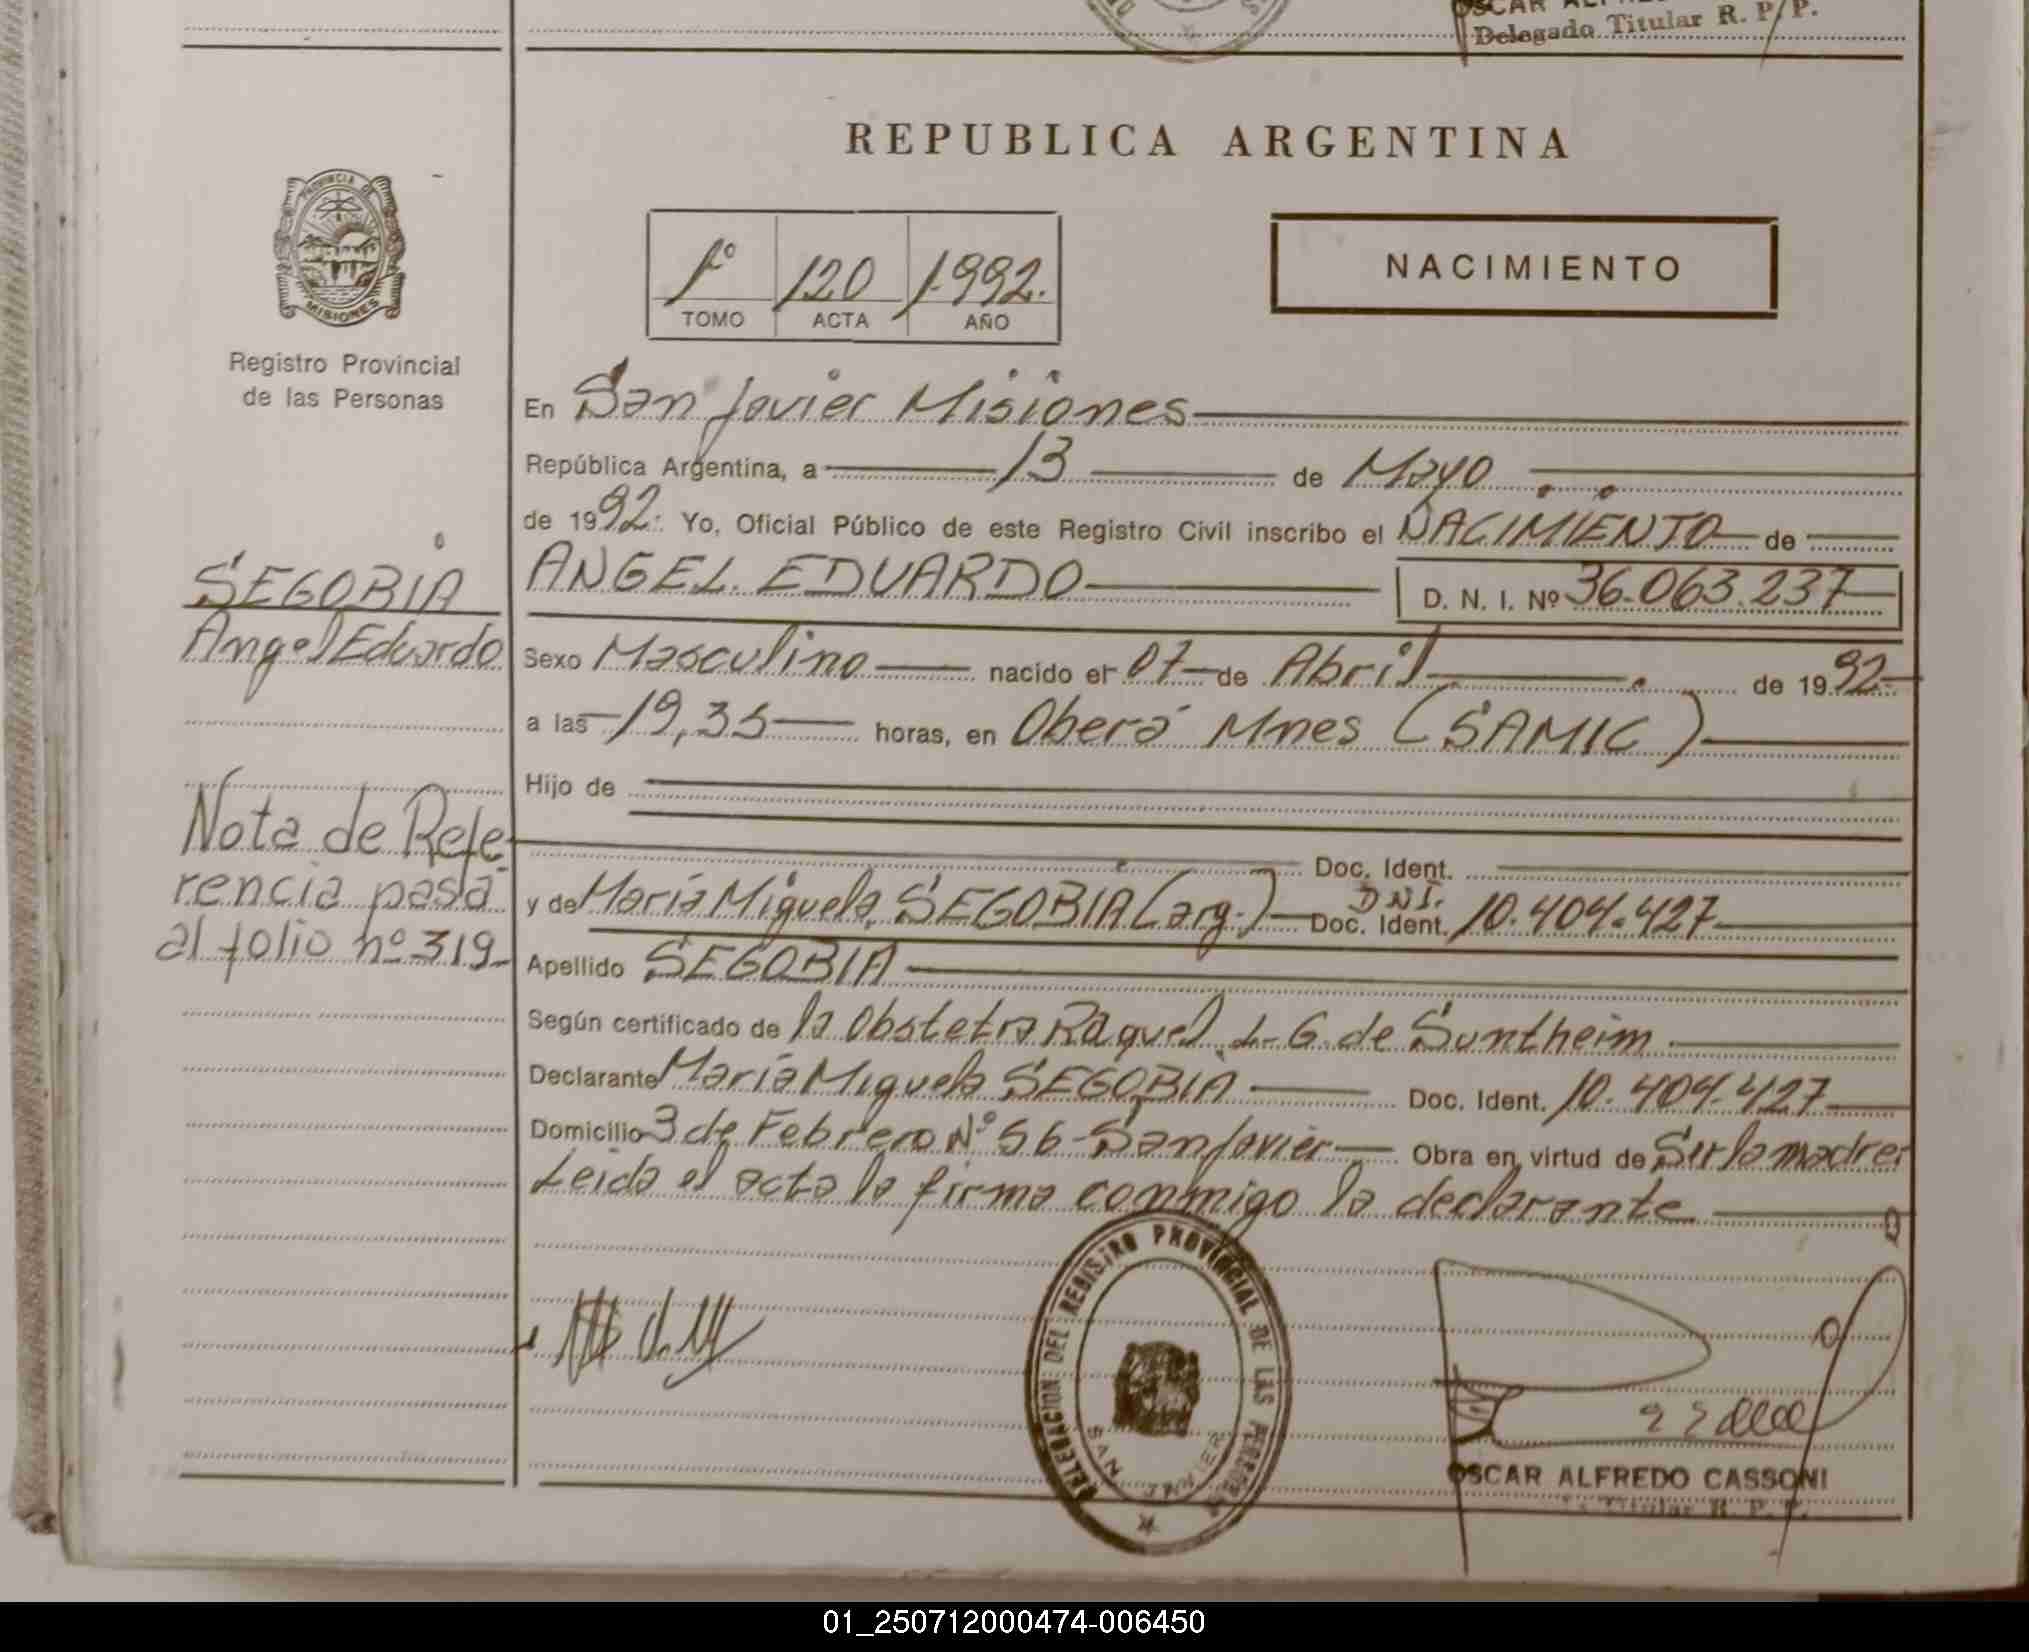 OSCAR
Delegado Titular R. P. P.
REPUBLICA ARGENTINA
PROVINCIA DE
MISIONES
1º 120 1.992.
TOMO ACTA AÑO
NACIMIENTO
Registro Provincial
de las Personas
En San Javier Misiones
República Argentina, a 13 de Mayo
de 1992. Yo, Oficial Público de este Registro Civil inscribo el NACIMIENTO de
ANGEL EDUARDO D. N. I. Nº 36.063.237
SEGOBIA
Angel Eduardo
Sexo Masculino nacido el 07 de Abril de 1992
a las 19,35 horas, en Oberá Mnes (SAMIC)
Hijo de
Nota de Refe-
rencia pasa
al folio nº 319
Doc. Ident.
y de María Miguela SEGOBIA (arg.) Doc. Ident. DNI. 10.404.427
Apellido SEGOBIA
Según certificado de la Obstetra Raquel L. G. de Suntheim
Declarante María Miguela SEGOBIA Doc. Ident. 10.404.427
Domicilio 3 de Febrero Nº 56 San Javier Obra en virtud de Ser la madre
Leida el acta la firma conmigo la declarante
DELEGACION DEL REGISTRO PROVINCIAL DE LAS PERSONAS
SAN JAVIER
OSCAR ALFREDO CASSONI
Titular R. P. P.
01_250712000474-006450